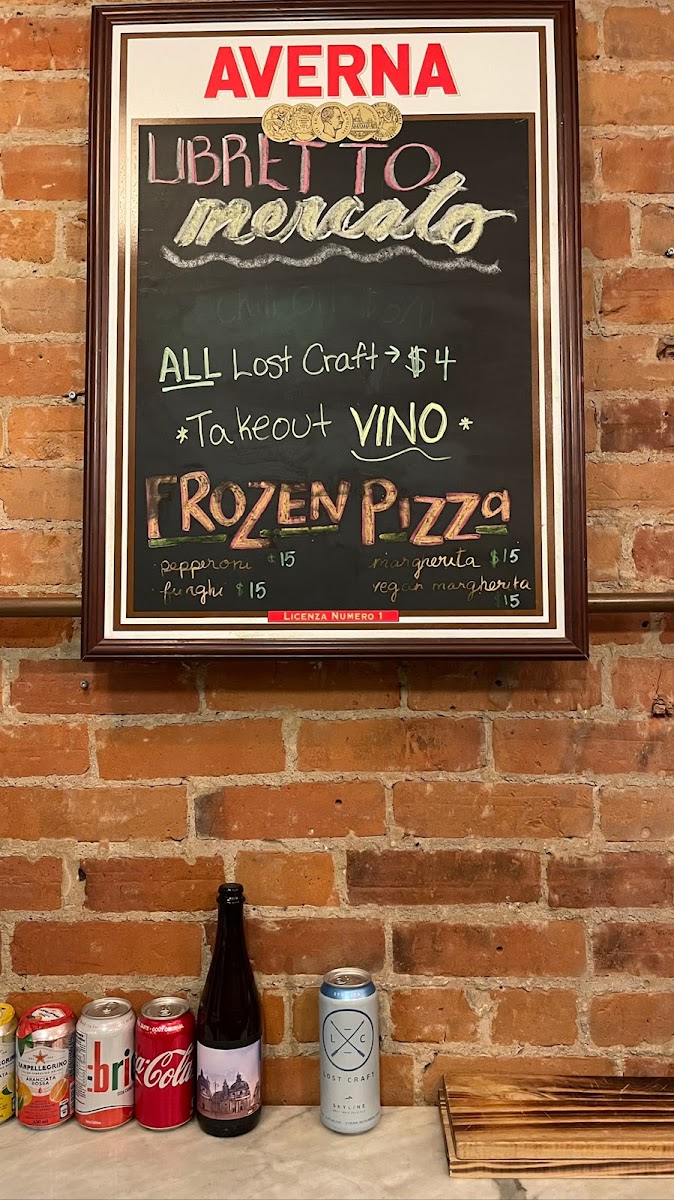 AVERNA
LIBRETTO
mercato
ALL Lost Craft → $4
*Takeout VINO*
FROZEN PIZZa
pepperoni $15
margherita $15
funghi $15
vegan margherita
$15
LICENZA NUMERO 1
SANPELLEGRINO
ARANCIATA
ROSSA
:bri
Coca-Cola
L C
LOST CRAFT
SKYLINE